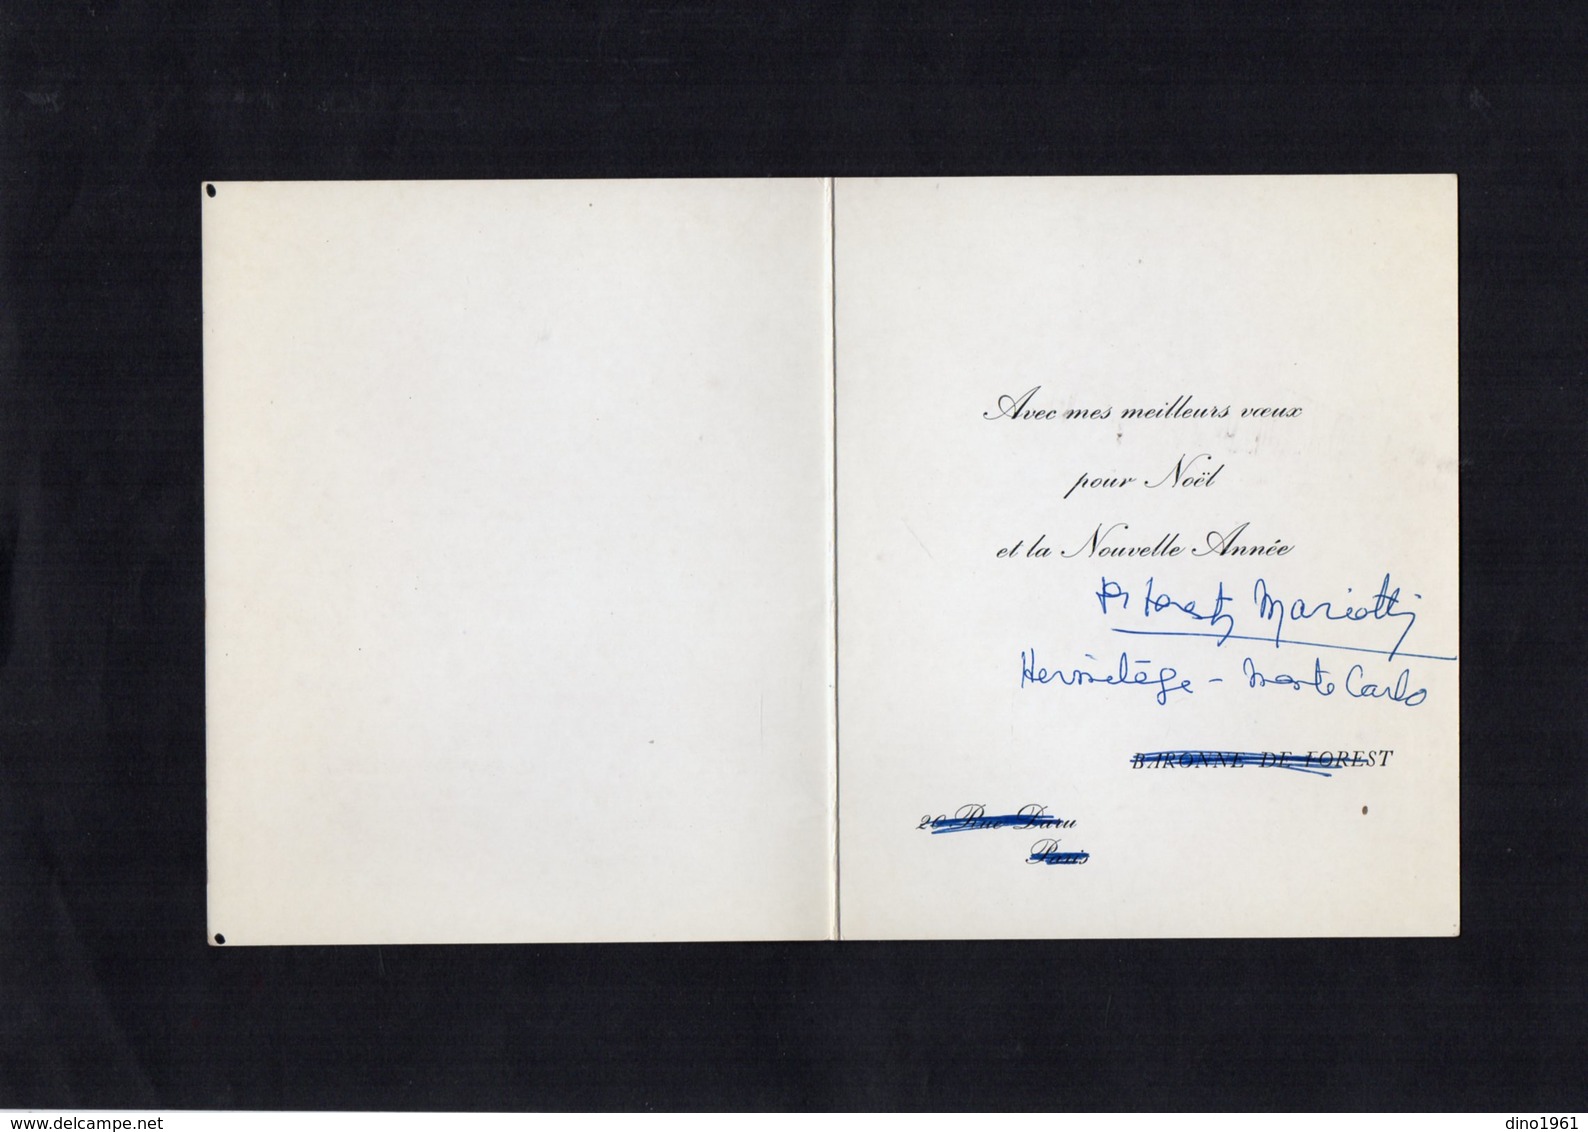 Avec mes meilleurs vœux
pour Noël
et la Nouvelle Année
Mariotti
Hermitage - Monte Carlo
BARONNE DE FOREST
20 Rue Daru
Paris
www.delcampe.net
dino1961